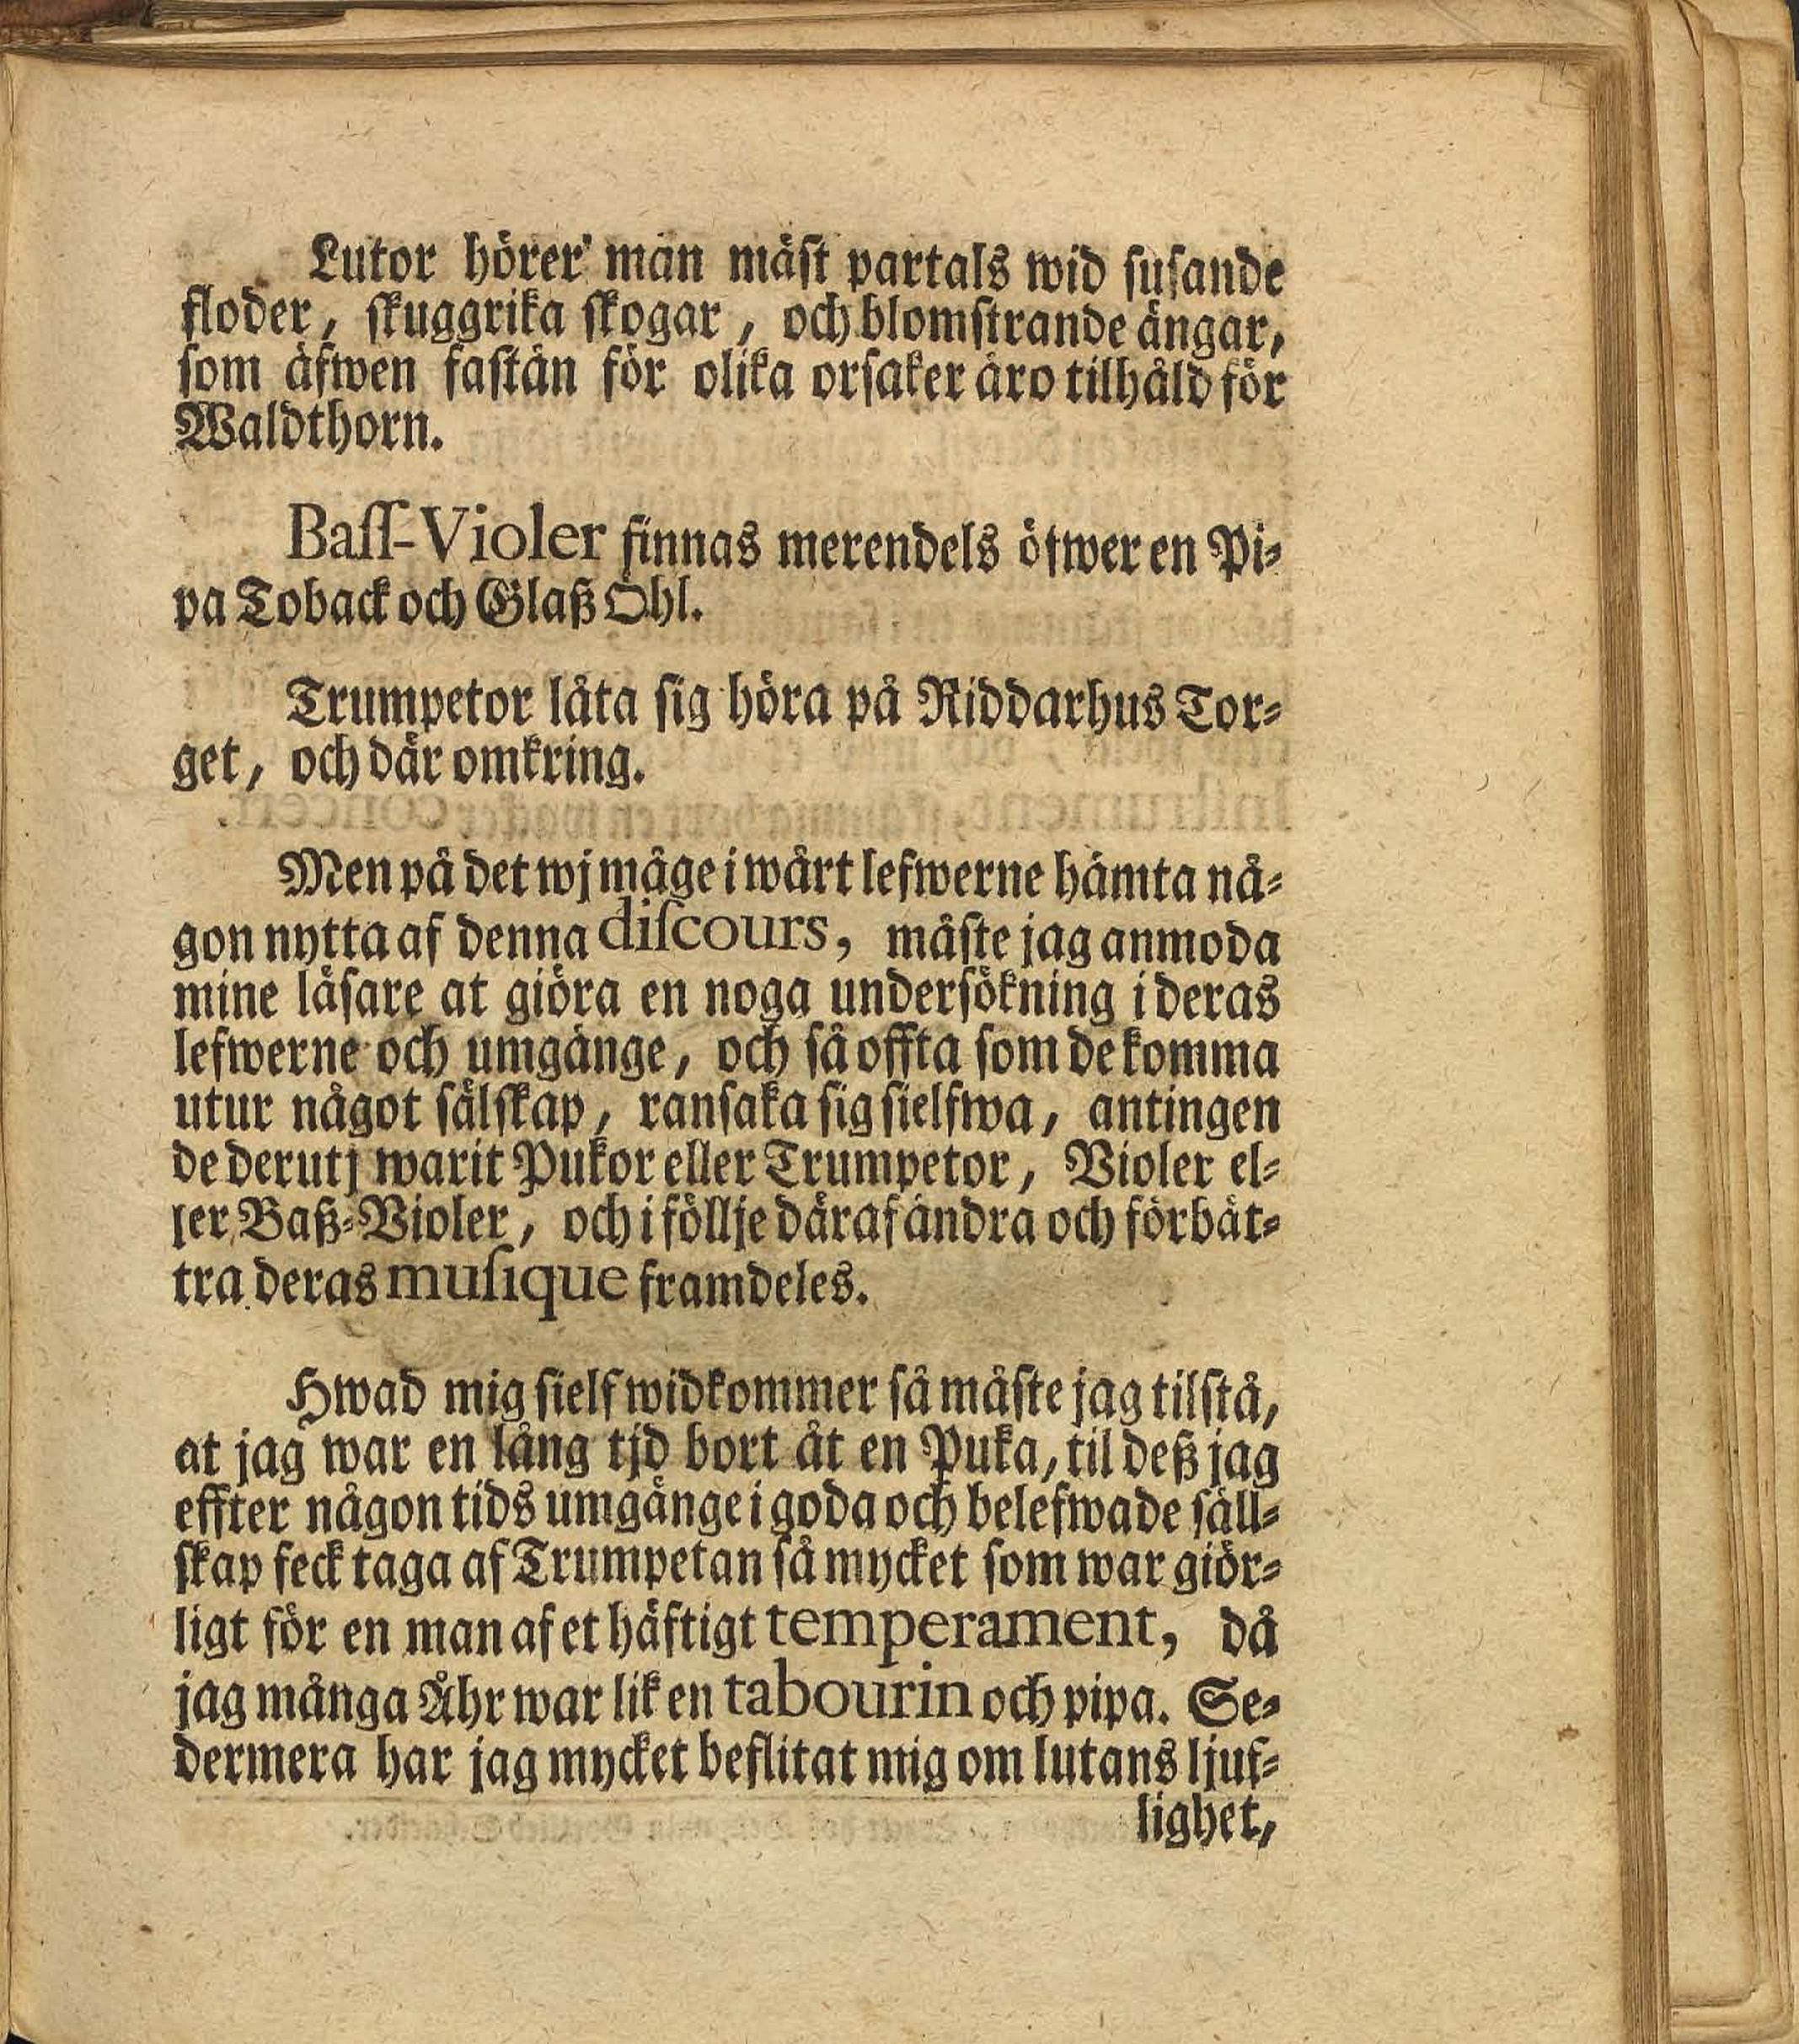 Lutor hörer man mäst partals wid susande
floder, skuggrika skogar, och blomstrande ängar,
som äfwen fastän för olika orsaker äro tilhåld för
Waldthorn.
Bass-Violer finnas merendels öfwer en Pi-
pa Toback och Glaß Öhl.
Trumpetor låta sig höra på Riddarhus Tor-
get, och där omkring.
Men på det wj måge i wårt lefwerne hämta nå-
gon nytta af denna discours, måste jag anmoda
mine läsare at giöra en noga undersökning i deras
lefwerne och umgänge, och så offta som de komma
utur något sälskap, ransaka sig sielfwa, antingen
de derutj warit Pukor eller Trumpetor, Violer el-
ler Baß-Violer, och i föllje däraf ändra och förbät-
tra deras musique framdeles.
Hwad mig sielf widkommer så måste jag tilstå,
at jag war en lång tjd bort åt en Puka, til deß jag
effter någon tids umgänge i goda och belefwade säll-
skap feck taga af Trumpetan så mycket som war giör-
ligt för en man af et häftigt temperament, då
jag många Åhr war lik en tabourin och pipa. Se-
dermera har jag mycket beflitat mig om lutans ljuf-
lighet,